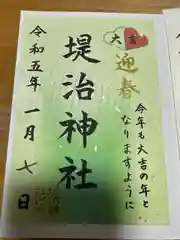 大吉
迎春
今年も大吉の年と
なりますように
堤治神社
令和五年一月七日